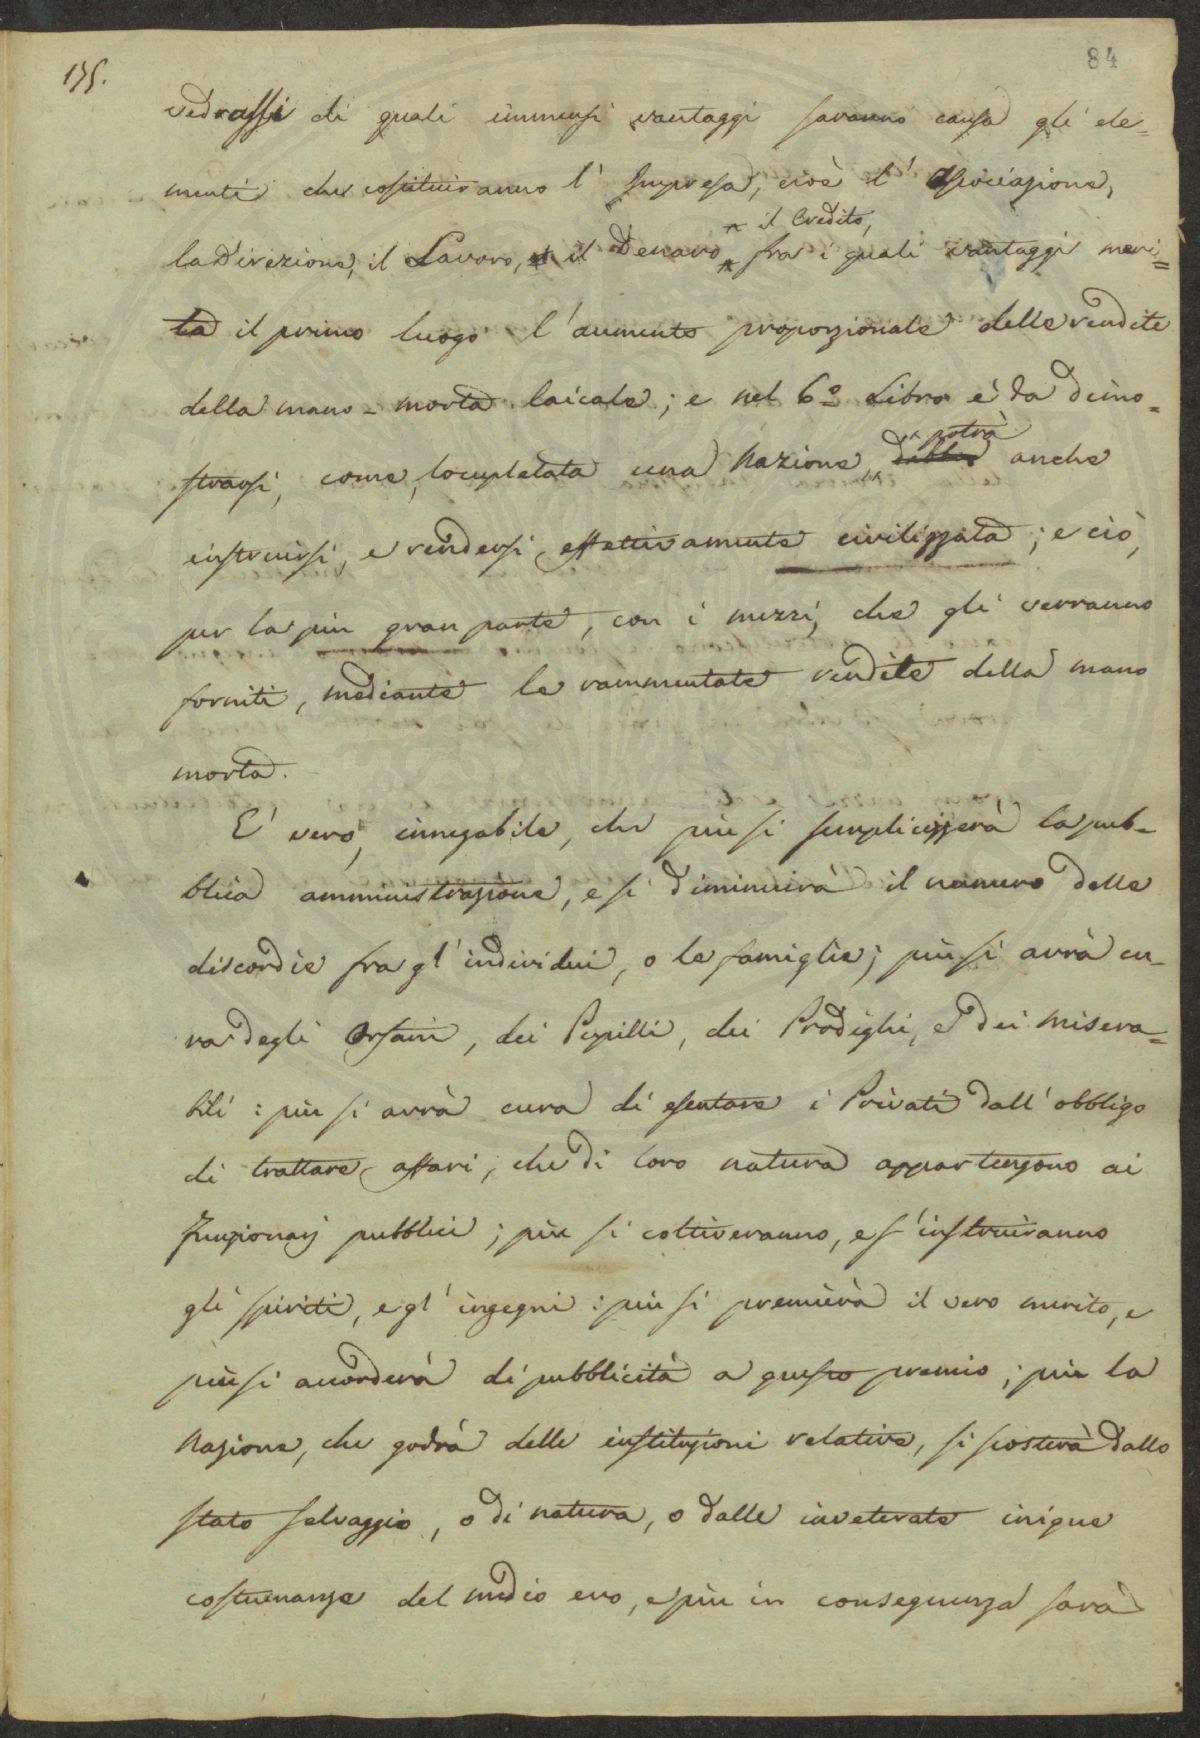 135.
84
vedrassi di quali immensi vantaggi saranno causa gli ele=
menti che costituiranno l'Impresa, cioè l'Associazione,
* il Credito,
la direzione, il Lavoro, il Denaro * fra i quali vantaggi meri=
ta il primo luogo l'aumento proporzionale delle rendite
della mano-morta laicale; e nel 6º Libro è da dimo=
potrà
strarsi, come, locupletata una Nazione, debba anche
instruirsi, e rendersi effettivamente civilizzata; e ciò,
per la più gran parte, con i mezzi, che gli verranno
forniti, mediante le rammentate rendite della mano
morta.
E' vero, innegabile, che più si semplicizzerà la pub=
blica amministrazione, e si diminuirà il numero delle
discordie fra gl'individui, o le famiglie; più si avrà cu=
ra degli Orfani, dei Pupilli, dei Prodighi, e dei misera=
bili: più si avrà cura di esentare i Privati dall'obbligo
di trattare affari, che di loro natura appartengono ai
Funzionarj pubblici; più si coltiveranno, e s'instruiranno
gli spiriti, e gl'ingegni: più si premierà il vero merito, e
più si accorderà di pubblicità a questo premio; più la
Nazione, che godrà delle instituzioni relative, si scosterà dallo
stato selvaggio, o di natura, o dalle inveterate inique
costumanze del medio evo, e più in conseguenza sarà